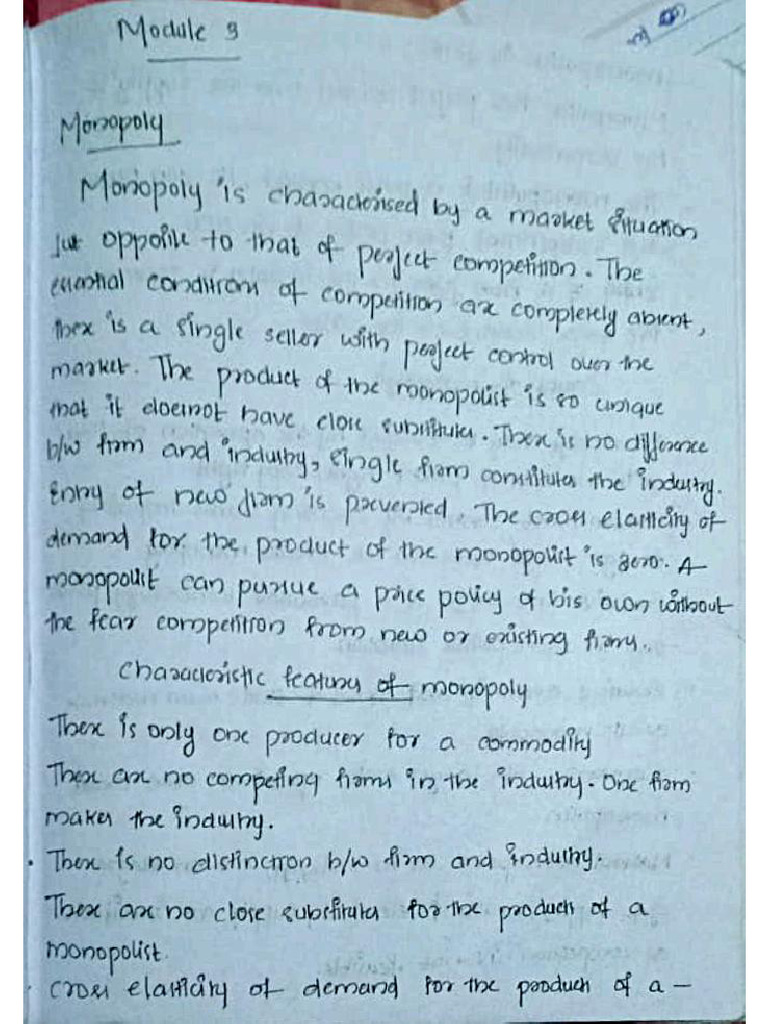 Module 3
Monopoly
Monopoly is characterised by a market situation
just opposite to that of perfect competition. The
essential conditions of competition are completely absent,
there is a single seller with perfect control over the
market. The product of the monopolist is so unique
that it doesnot have close substitutes. There is no difference
b/w firm and industry, single firm constitutes the industry.
Entry of new firm is prevented. The cross elasticity of
demand for the product of the monopolist is zero. A
monopolist can pursue a price policy of his own without
the fear competition from new or existing firms.
Characteristic features of monopoly
There is only one producer for a commodity
There are no competing firms in the industry. One firm
makes the industry.
. There is no distinction b/w firm and industry.
There are no close substitutes for the products of a
monopolist.
. Cross elasticity of demand for the product of a -